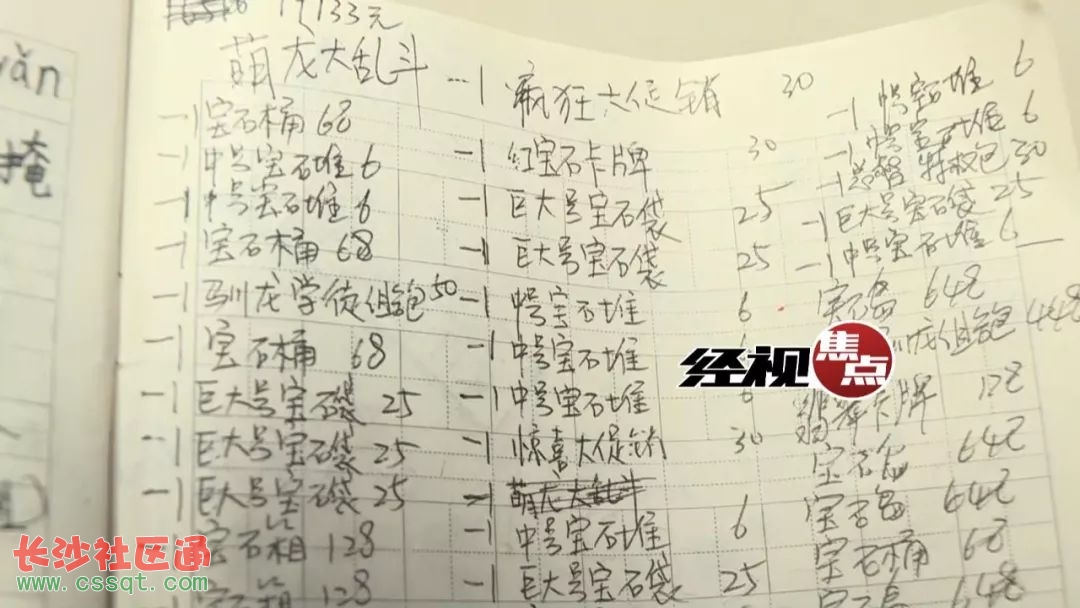 19133元
萌龙大乱斗
一1宝石桶 68
一1中号宝石堆 6
一1中号宝石堆 6
一1宝石桶 68
一1驯龙学徒组包 50
一1宝石桶 68
一1巨大号宝石袋 25
一1巨大号宝石袋 25
一1巨大号宝石袋 25
宝石箱 128
宝石箱 128
一1疯狂大促销 30
一1红宝石卡牌 30
一1巨大号宝石袋 25
一1巨大号宝石袋 25
一1中号宝石堆 6
一1中号宝石堆
一1中号宝石堆 6
一1惊喜大促销 30
一1萌龙大乱斗
一1中号宝石堆 6
一1巨大号宝石袋 25
一1中号宝石堆 6
一1中号宝石堆 6
特权包 30
一1巨大号宝石袋 25
一1中号宝石堆 6
宝石岛 648
龙组包 448
卡牌 128
宝石岛 648
宝石岛 648
宝石桶 68
宝石岛 648
vǎn
掩
经视焦点
长沙社区通
www.cssqt.com